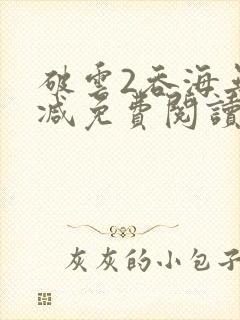 破雲2吞海無
減免費閱讀
灰灰的小包子